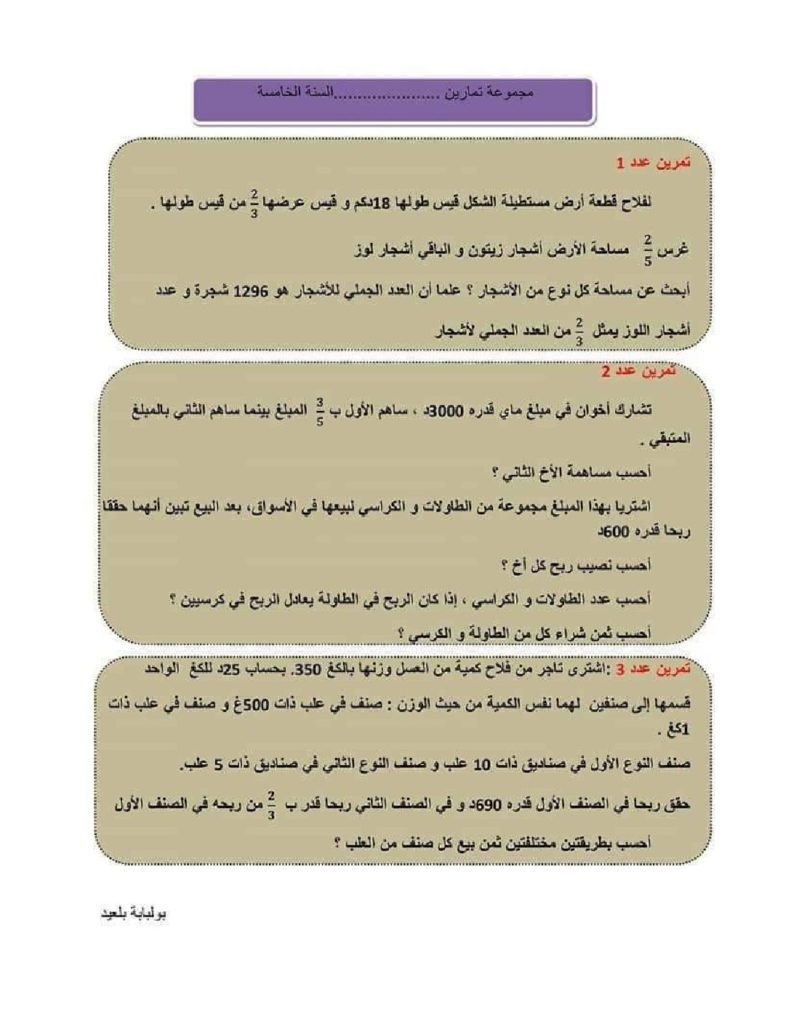 مجموعة تمارين ......................السنة الخامسة
تمرين عدد 1
لفلاح قطعة أرض مستطيلة الشكل قيس طولها 18دكم و قيس عرضها 2/3 من قيس طولها .
غرس 2/5 مساحة الأرض أشجار زيتون و الباقي أشجار لوز
أبحث عن مساحة كل نوع من الأشجار ؟ علما أن العدد الجملي للأشجار هو 1296 شجرة و عدد
أشجار اللوز يمثل 2/3 من العدد الجملي لأشجار
تمرين عدد 2
تشارك أخوان في مبلغ ماي قدره 3000د ، ساهم الأول ب 3/5 المبلغ بينما ساهم الثاني بالمبلغ
المتبقي .
أحسب مساهمة الأخ الثاني ؟
اشتريا بهذا المبلغ مجموعة من الطاولات و الكراسي لبيعها في الأسواق، بعد البيع تبين أنهما حققا
ربحا قدره 600د
أحسب نصيب ربح كل أخ ؟
أحسب عدد الطاولات و الكراسي ، إذا كان الربح في الطاولة يعادل الربح في كرسيين ؟
أحسب ثمن شراء كل من الطاولة و الكرسي ؟
تمرين عدد 3 :اشترى تاجر من فلاح كمية من العسل وزنها بالكغ 350. بحساب 25د للكغ الواحد
قسمها إلى صنفين لهما نفس الكمية من حيث الوزن : صنف في علب ذات 500غ و صنف في علب ذات
1كغ .
صنف النوع الأول في صناديق ذات 10 علب و صنف النوع الثاني في صناديق ذات 5 علب.
حقق ربحا في الصنف الأول قدره 690د و في الصنف الثاني ربحا قدر ب 2/3 من ربحه في الصنف الأول
أحسب بطريقتين مختلفتين ثمن بيع كل صنف من العلب ؟
بولبابة بلعيد